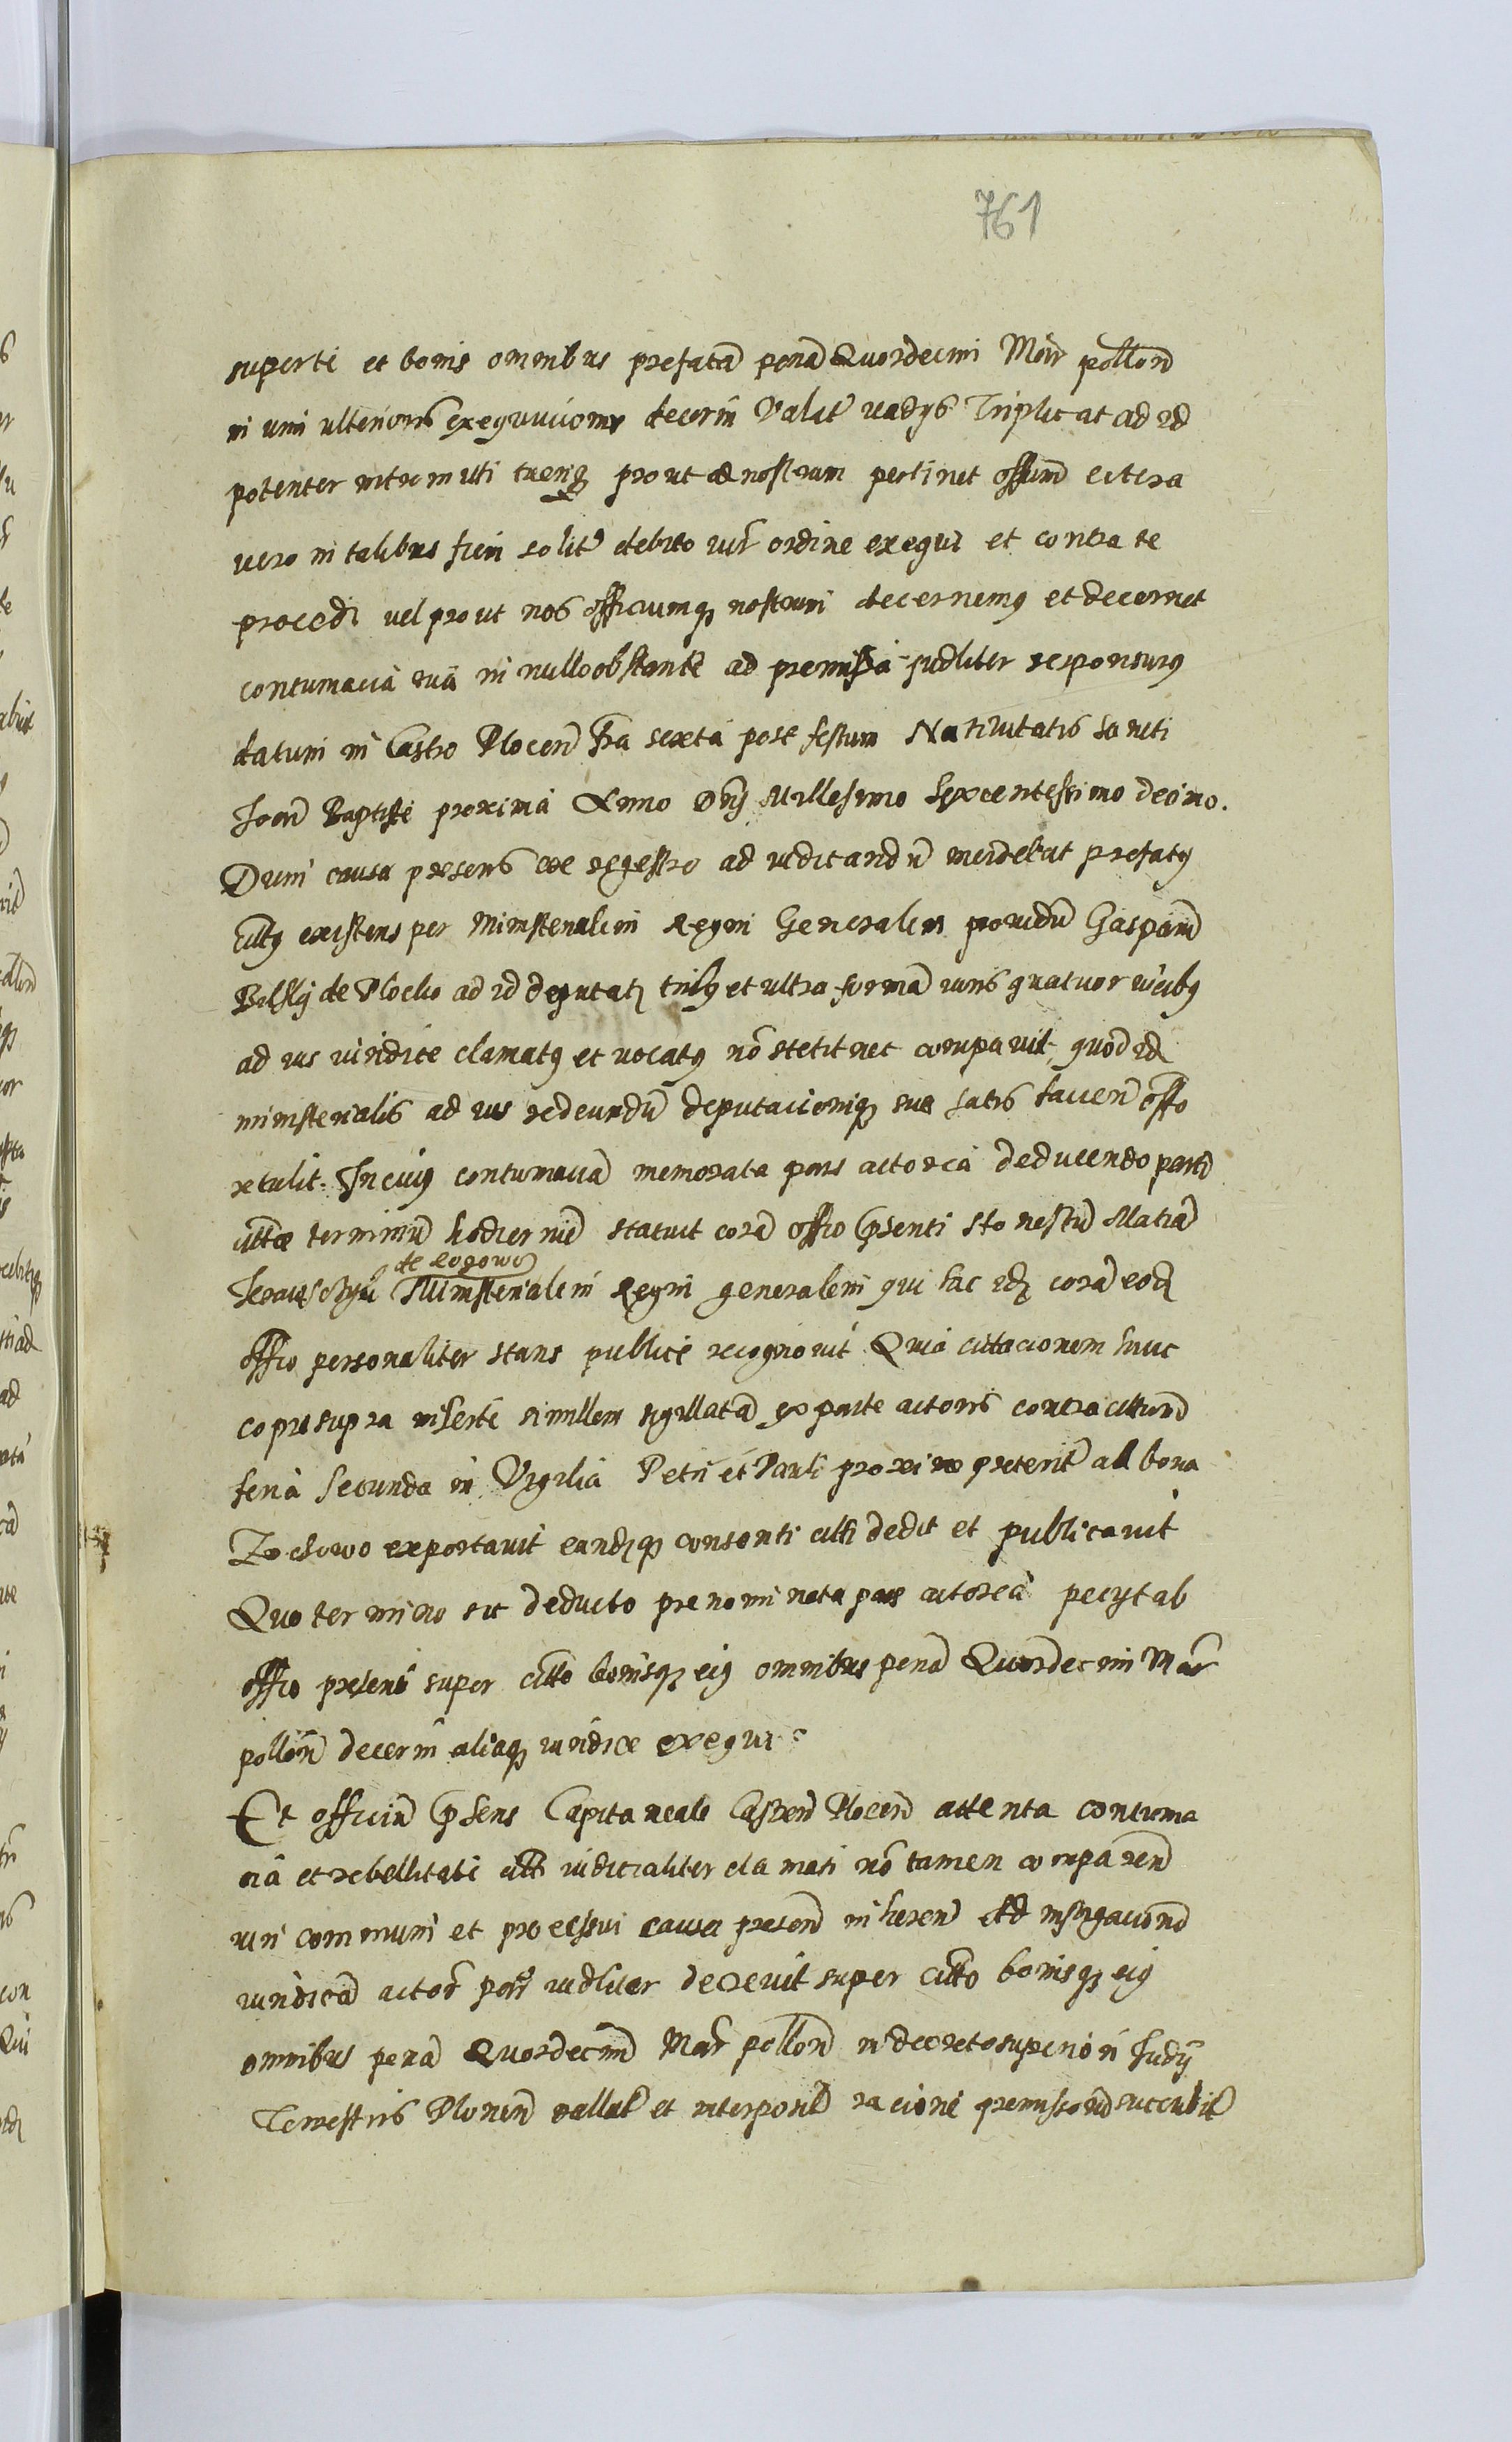 761
superte et bonis omnibus prefatã penã Quordecim Mar̃ pollon̄
in vim ulterioris exequucionis decerni Valat̃ vadys Triplicat ad id
potenter intromitti tueriq3 prout ad nostrum pertinet offium̄ cetera
vero in talibus fieri solit̃ debito iur̃ ordine exequi et contra te
procedi vel prout nos officiumq3 nostrum decernemꝰ et decernet
contumacia tua in nullo obstante ad premissa iudliter responsurꝰ
datum in Castro Plocen̄ fr̃a sexta post festum Natiuitatis Sancti
Joan̄ Baptiste proxima Anno Dnĩ Millesimo Sexcentessimo decimo.
Dum causa presens ex regestro ad iudicandũ incidebat prefatꝰ
cittꝰ existens per Ministerialem Regni Generalem prouidũ Gasparũ
de Plocko ad id deputatũ tribꝰ et ultra formã iuris quatuor vicibꝰ
ad ius iuridice clamatꝰ et vocatꝰ nõ stetit nec comparuit, quod id
ministerialis ad ius redeundũ deputacioniq3 sue satis faccen̄ offo
retulit. In cuiꝰ contumaciã memorata pars actorea deducendo parti
citte terminũ hodiernũ statuit corã offio p̃senti honestũ Matiã
de Rogowo
Ministerialem Regni generalem qui hic idẽ corã eodẽ
offio personaliter stans publice recognovit Quia cittacionem huic
copie supra inserte similem sigillatã ex parte actoris contra cittum̄
feria Secunda in Vigilia Petri et Pauli proxime preterit̃ ad bona
Zochowo exportauit eandẽq3 consorti citti dedit et publicauit
Quo termino sic deducto prenominata pars actorea pecyt ab
offio presenti super citto bonisq3 eiꝰ omnibus penã Quordecim Mar̃
pollon̄ decerni aliaq3 iuridice exequi
Et officiũ p̃sens Capitaneale Castren̄ Plocen̄ attenta contuma
cia et rebellitate citti iudicialiter clamati nõ tamen comparen̄
iuri communi et processui cause presen̄ inheren̄ ad instigacionẽ
iuridicã actor̃ part̃ iudliter decrevit super citto bonisq3 eiꝰ
omnibus penã Quordecim Mar̃ pollon̄ in decreto superiori Judy
Terrestris Plonen̄ vallat̃ et interposit̃ racione premissor̃ succubit̃